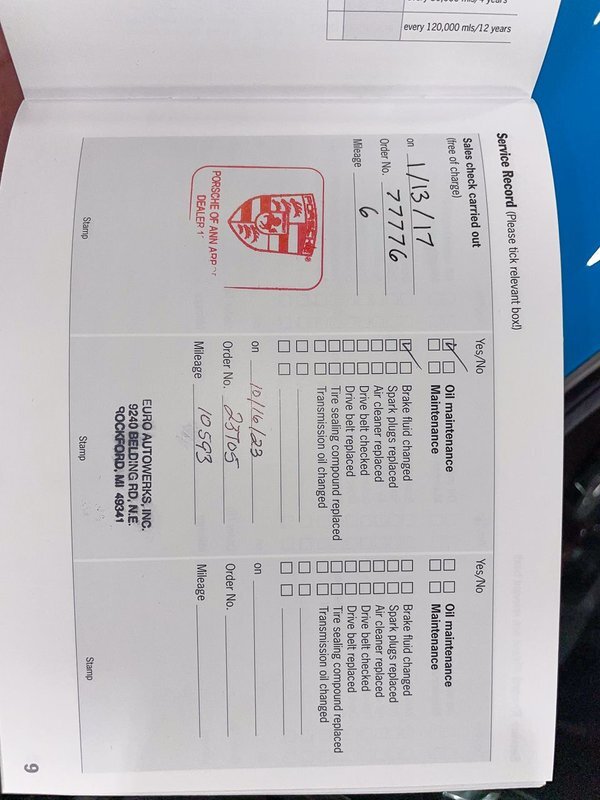 every 120,000 mls/12 years
Service Record (Please tick relevant box!)
Sales check carried out
(free of charge)
on 1/13/17
Order No. 77776
Mileage 6
PORSCHE
PORSCHE OF ANN ARBOR
DEALER
Stamp
Yes/No
Oil maintenance
Maintenance
Brake fluid changed
Spark plugs replaced
Air cleaner replaced
Drive belt checked
Drive belt replaced
Tire sealing compound replaced
Transmission oil changed
on 10/16/23
Order No. 23T05
Mileage 10593
EURO AUTOWERKS, INC.
9240 BELDING RD, N.E.
ROCKFORD, MI 49341
Stamp
Yes/No
Oil maintenance
Maintenance
Brake fluid changed
Spark plugs replaced
Air cleaner replaced
Drive belt checked
Drive belt replaced
Tire sealing compound replaced
Transmission oil changed
on
Order No.
Mileage
Stamp
9